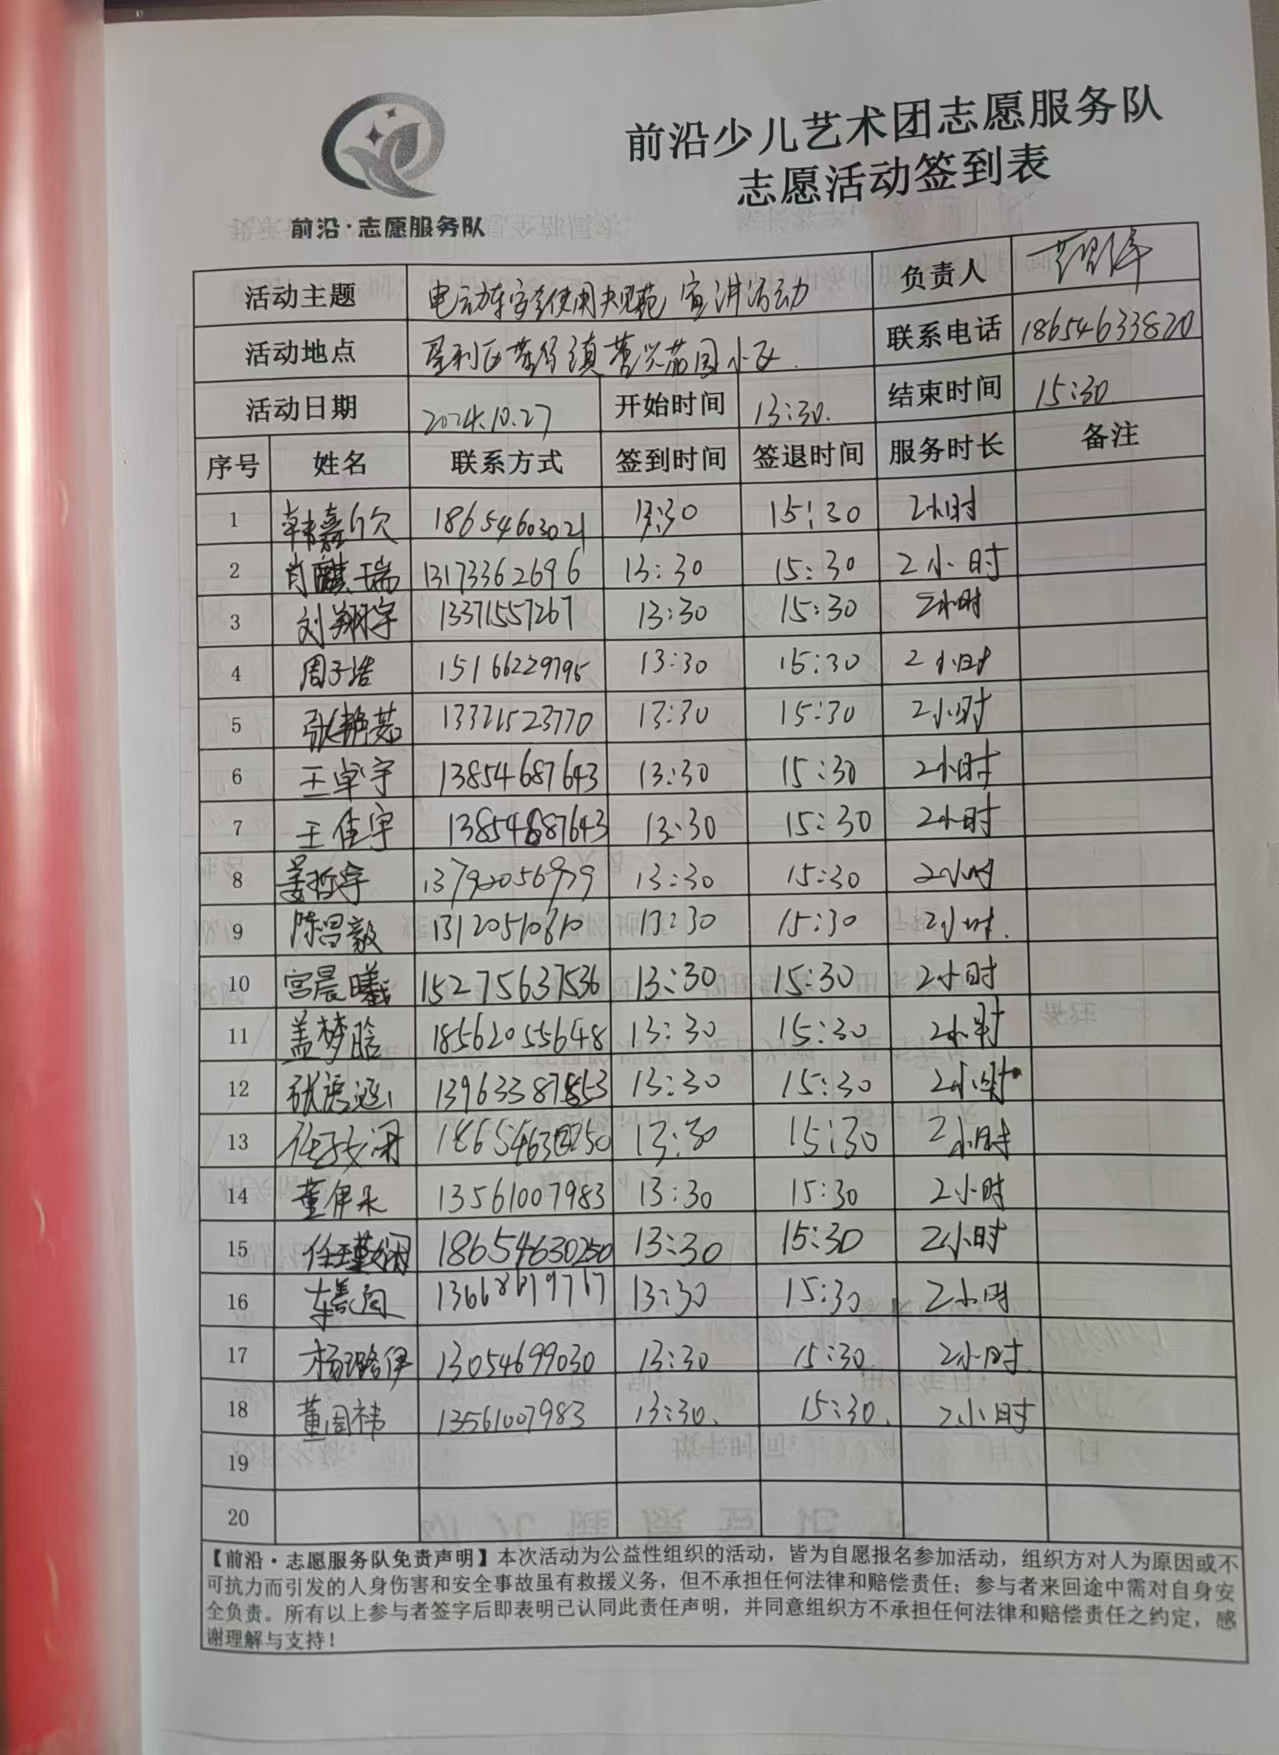 前沿少儿艺术团志愿服务队
志愿活动签到表
前沿·志愿服务队
活动主题 电动车安全使用规范宣讲活动 负责人
活动地点 垦利区 小区 联系电话 18654633820
活动日期 2024.10.27 开始时间 13:30. 结束时间 15:30
序号 姓名 联系方式 签到时间 签退时间 服务时长 备注
1 韩嘉欣 18654603021 13:30 15:30 2小时
2 肖麒瑞 13173362696 13:30 15:30 2小时
3 刘翔宇 13371557267 13:30 15:30 2小时
4 周子浩 15166229795 13:30 15:30 2小时
5 张艳茹 13321523770 13:30 15:30 2小时
6 王卓宇 13854687643 13:30 15:30 2小时
7 王佳宇 13854687643 13:30 15:30 2小时
8 姜哲宇 13792056979 13:30 15:30 2小时
9 陈昌毅 13120510810 13:30 15:30 2小时.
10 宫晨曦 15275637536 13:30 15:30 2小时
11 盖梦晗 18562055648 13:30 15:30 2小时
12 13963387853 13:30 15:30 2小时
13 13:30 15:30 2小时
14 董伊朵 13561007983 13:30 15:30 2小时
15 18654630250 13:30 15:30 2小时
16 13:30 15:30 2小时
17 杨璐伊 13054699030 13:30 15:30 2小时
18 董国祎 13561007983 13:30. 15:30. 2小时
19
20
【前沿·志愿服务队免责声明】本次活动为公益性组织的活动，皆为自愿报名参加活动，组织方对人为原因或不
可抗力而引发的人身伤害和安全事故虽有救援义务，但不承担任何法律和赔偿责任；参与者来回途中需对自身安
全负责。所有以上参与者签字后即表明已认同此责任声明，并同意组织方不承担任何法律和赔偿责任之约定，感
谢理解与支持！